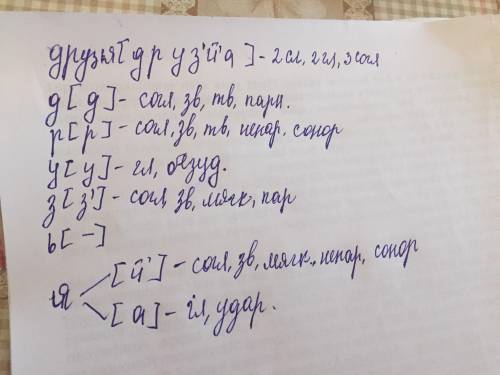 друзья [д р у з' й' а] - 2 сл, 2 гл, 3 согл
д [д] - согл, зв, тв, парн.
р [р] - согл, зв, тв, непар, сонор
у [у] - гл, безуд.
з [з'] - согл, зв, мягк, пар
ь [-]
я [й'] - согл, зв, мягк, непар, сонор
[а] - гл, удар.